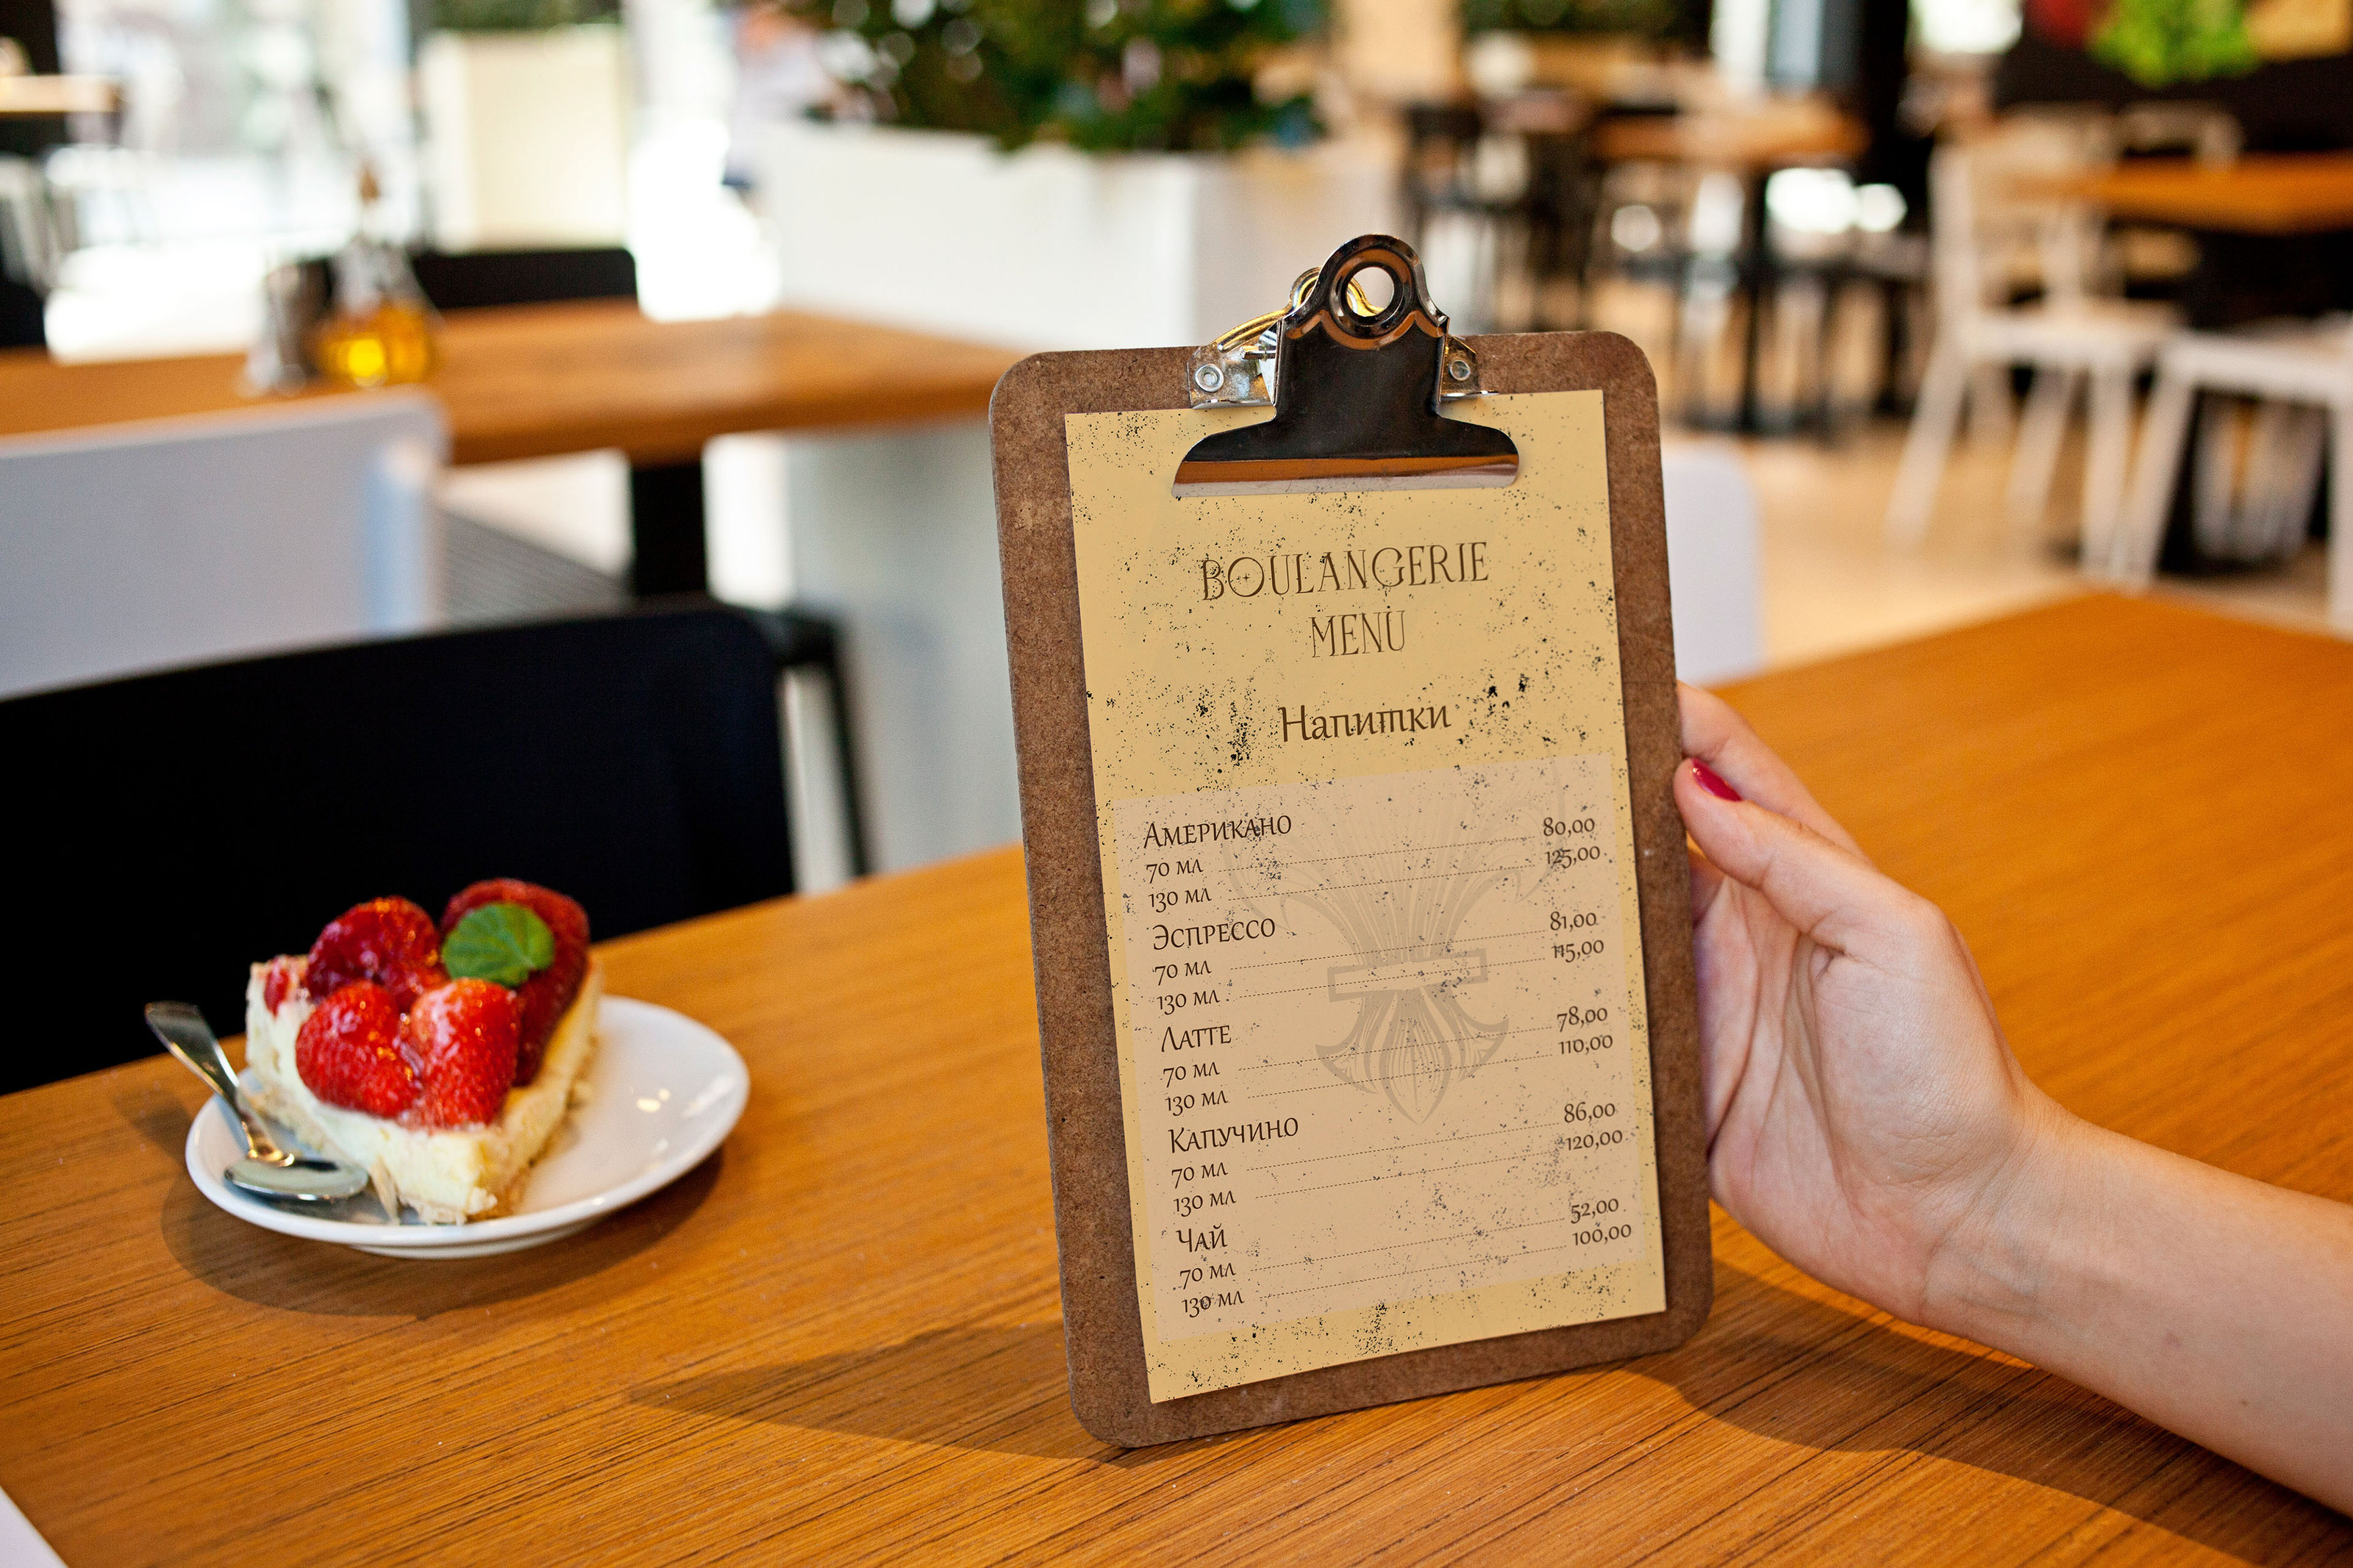 BOULANGERIE
MENU
Напитки
Американо
70 мл 80,00
130 мл 125,00
Эспрессо
70 мл 81,00
130 мл 115,00
Латте
70 мл 78,00
130 мл 110,00
Капучино
70 мл 86,00
130 мл 120,00
Чай
70 мл 52,00
130 мл 100,00